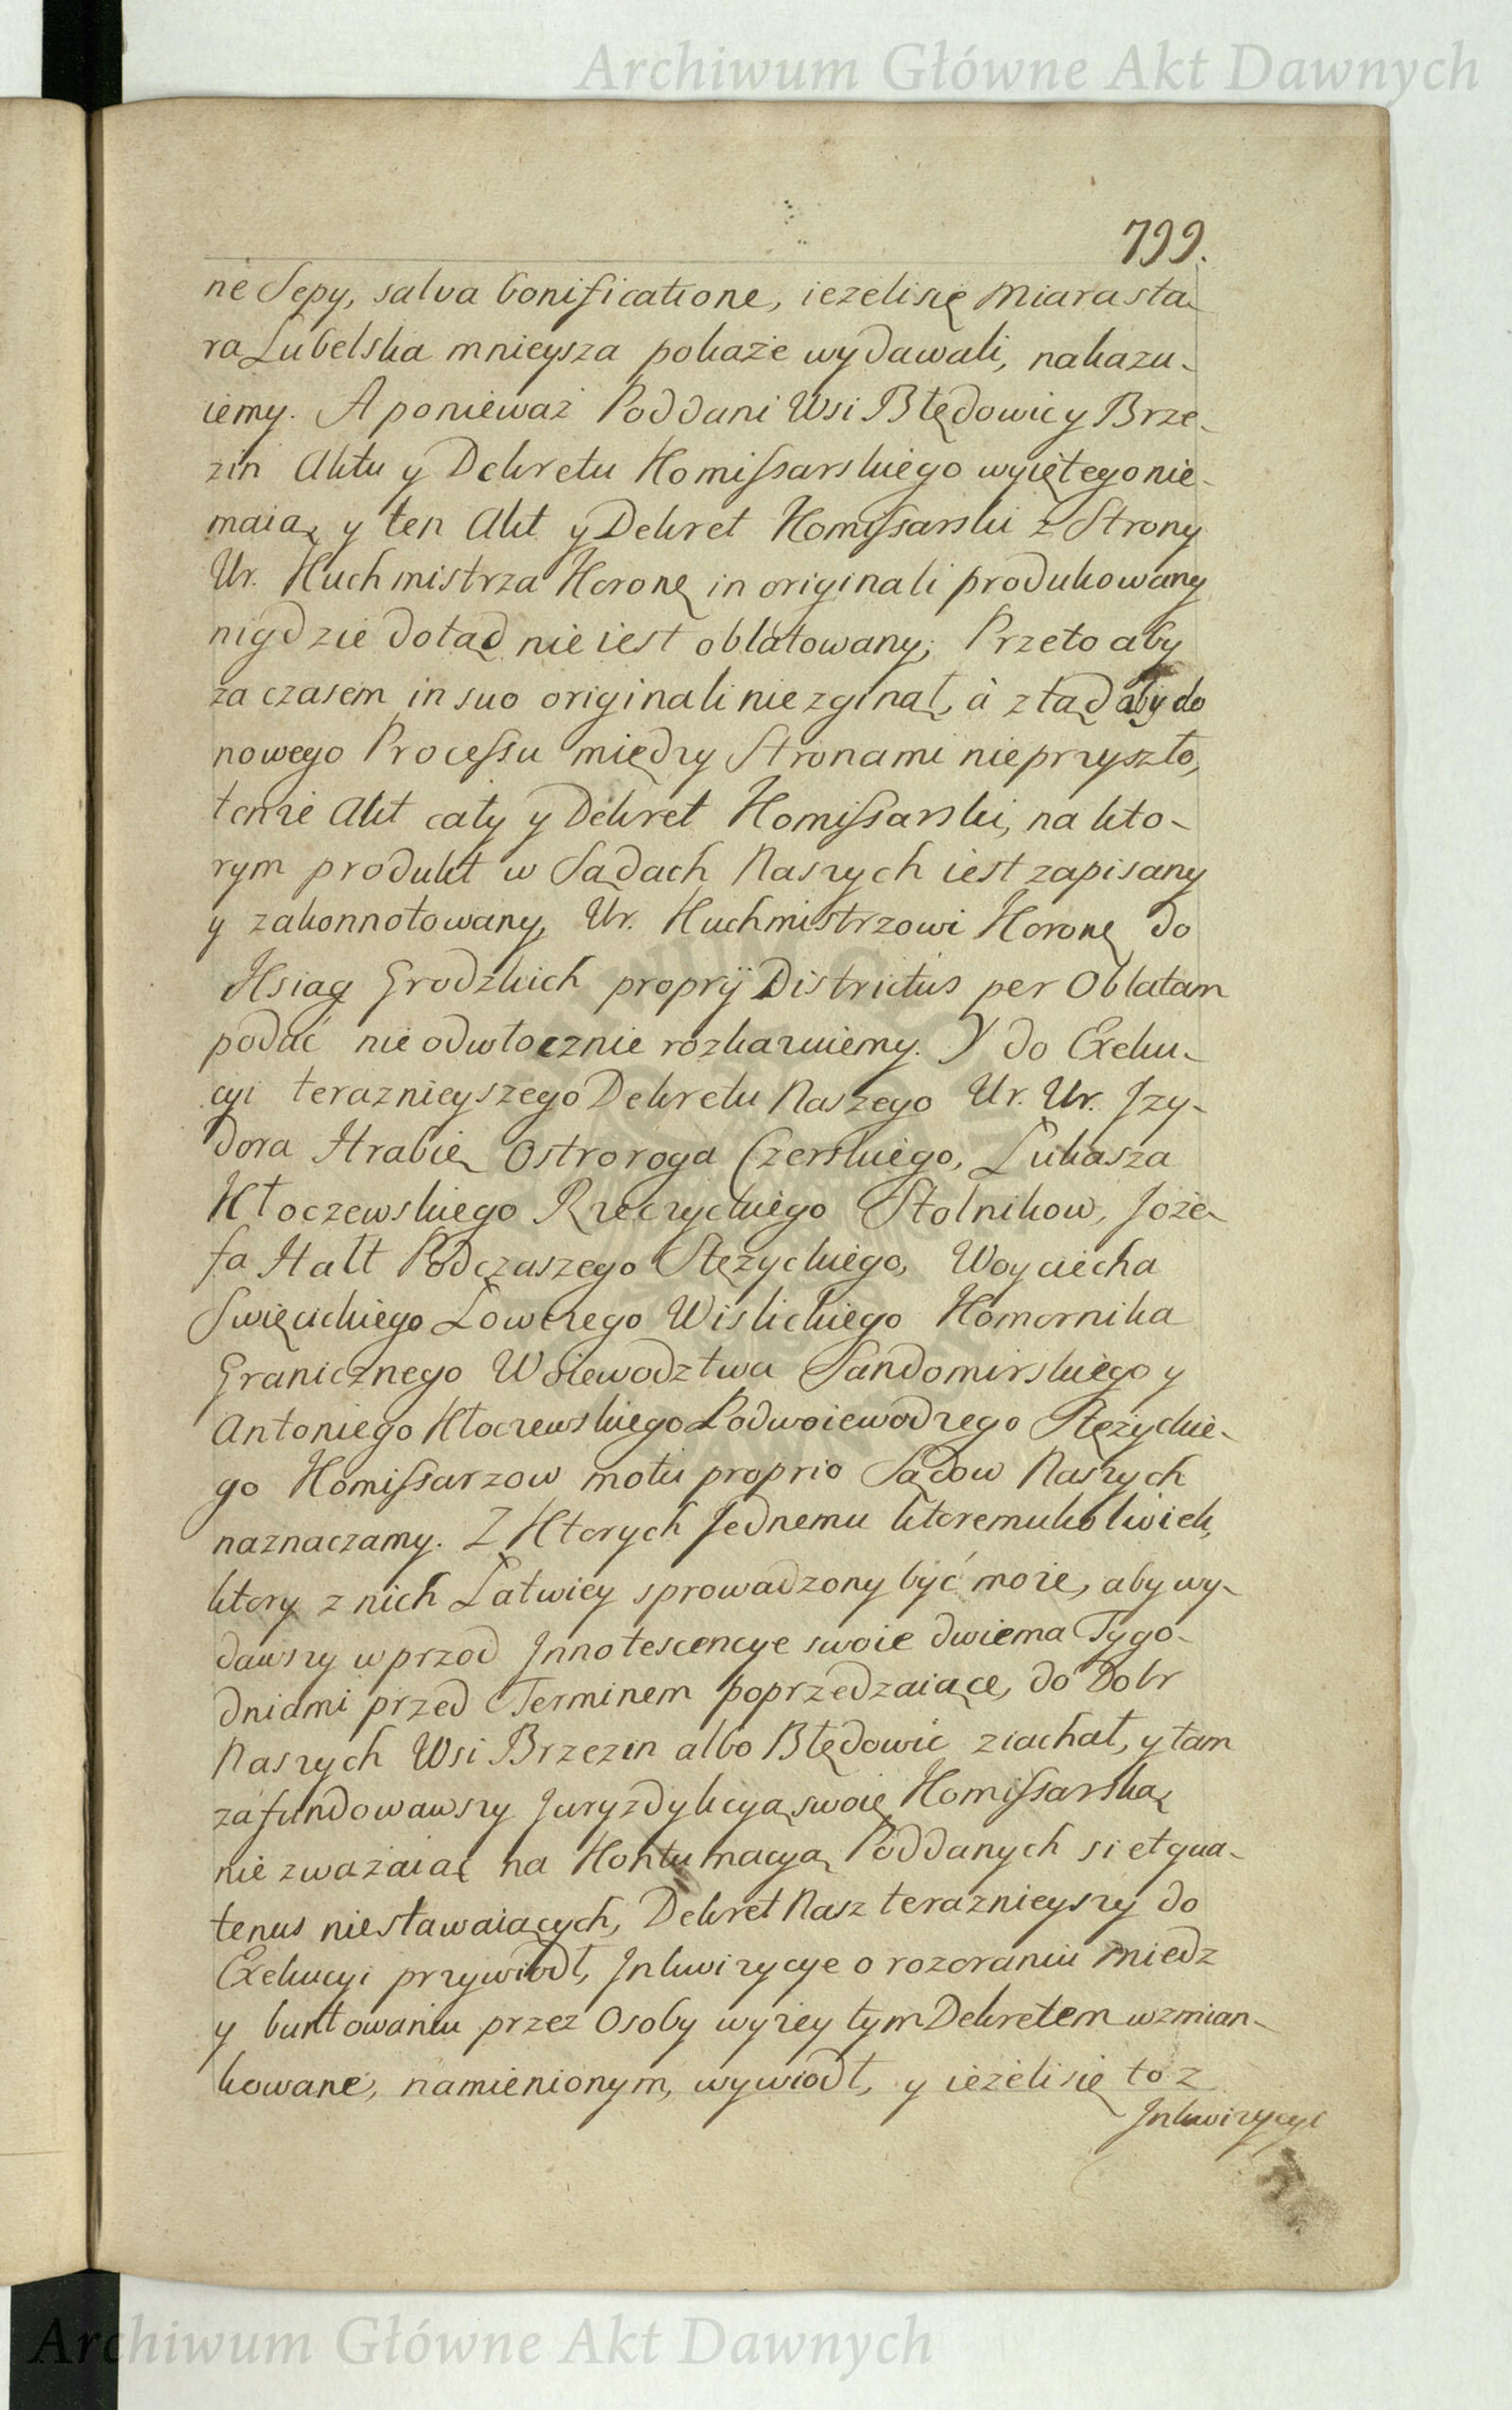 Archiwum Główne Akt Dawnych
799.
ne Sepy, salva bonificatione, ieżelisię Miara sta-
ra Lubelska mnieysza pokaże wydawali, nakazu-
iemy. A ponieważ Poddani Wsi Błędowic y Brze-
zin Aktu y Dekretu Komissarskiego wyiętego nie-
maią, y ten Akt y Dekret Komissarski z Strony
Ur. Kuchmistrza Koronę in originali produkowany
nigdzie dotąd nie iest oblatowany; Przeto aby
za czasem in suo originali niezginął, à ztąd aby do
nowego Processu między Stronami nieprzyszło,
tenże Akt cały y Dekret Komissarski, na kto-
rym produkt w Sądach Naszych iest zapisany
y zakonnotowany, Ur. Kuchmistrzowi Koronę do
Ksiąg Grodzkich proprij Districtûs per Oblatam
podać nieodwłocznie rozkazuiemy. Y do Exeku-
cyi teraznieyszego Dekretu Naszego Ur. Ur. Jzy-
dora Hrabię Ostroroga Czerskiego, Łukasza
Kłoczewskiego Rzeczyckiego Stolnikow, Joze-
fa Hałł Podczaszego Stęzyckiego, Woyciecha
Swięcickiego Łowczego Wislickiego Komornika
Granicznego Woiewodztwa Sandomirskiego y
Antoniego Kłoczewskiego Podwoiewodzego Stęzyckie-
go Komissarzow motu proprio Sądow Naszych
naznaczamy. Z Ktorych Jednemu ktoremukolwiek,
ktory z nich Łatwiey sprowadzony być może, aby wy-
dawszy wprzod Jnnotescencye swoie dwiema Tygo-
dniami przed Terminem poprzedzaiące, do Dobr
Naszych Wsi Brzezin albo Błędowic ziachał, y tam
zafundowawszy Juryzdykcyą swoię Komissarską
nie zważaiąc na Kontumacyą Poddanych si et qua-
tenus niestawaiących, Dekret Nasz teraznieyszy do
Exekucyi przywiodł, Jnkwizycye o rozoraniu miedz
y buntowaniu przez Osoby wyżey tym Dekretem wzmian-
kowane, namienionym, wywiodł, y ieżelisię to z
Jnkwizycyi
Archiwum Główne Akt Dawnych